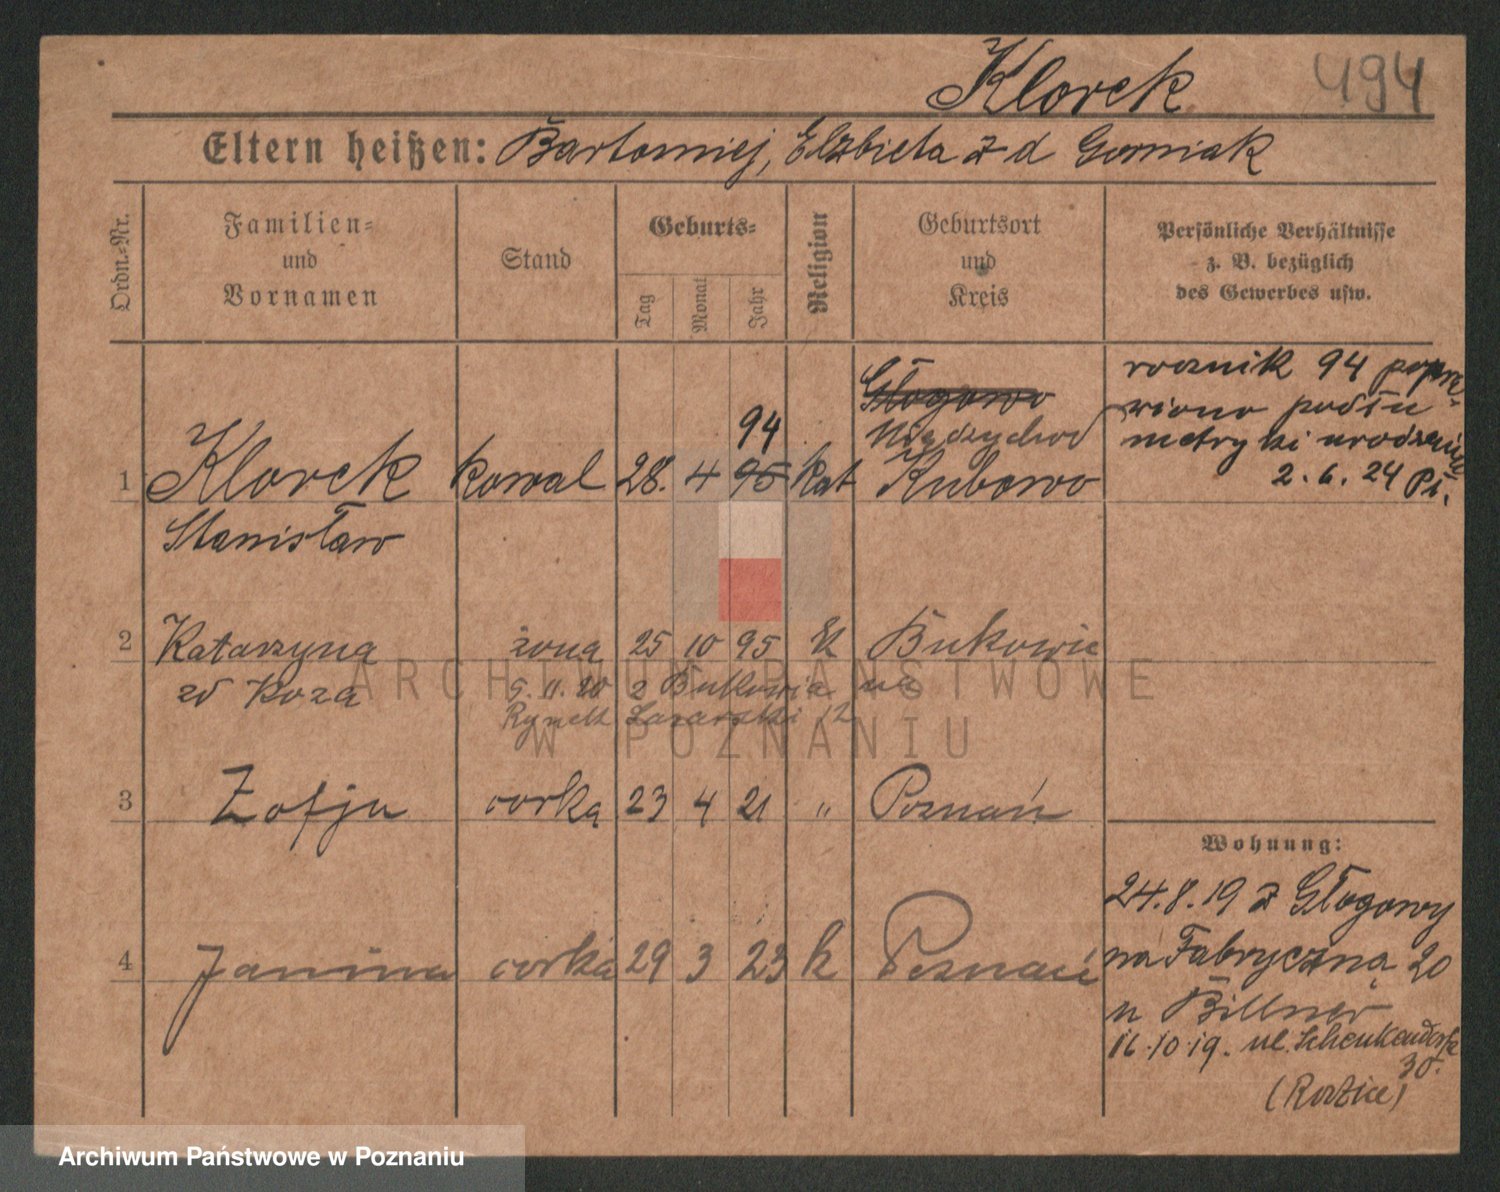 Klorek 494
Eltern heißen: Bartomiej, Elzbieta z d Gorniak
Ordn.-Nr.
Familien-
und
Vornamen
Stand
Geburts-
Tag
Monat
Jahr
Religion
Geburtsort
und
Kreis
Persönliche Verhältnisse
z. B. bezüglich
des Gewerbes usw.
Głogowo
Międzychod
rocznik 94 popra-
wiono podłu
metryki urodzenia
2. 6. 24
94
1 Klorek kowal 28. 4 95 kat Kubowo
Stanisław
2 Katarzyna żona 25 10 95 k Bukowie
zd Koza 5. 11. 20 z Bukowia na
Rynek Lazarski 12
3 Zofja corka 23 4 21 " Poznań
4 Janina corka 29 3 23 k Poznań
Wohnung:
24. 8. 19 z Głogowy
na Fabryczną 20
u Billner
16. 10. 19. ul. Schenkendorfa
30.
(Rodzice)
ARCHIWUM PAŃSTWOWE
W POZNANIU
Archiwum Państwowe w Poznaniu